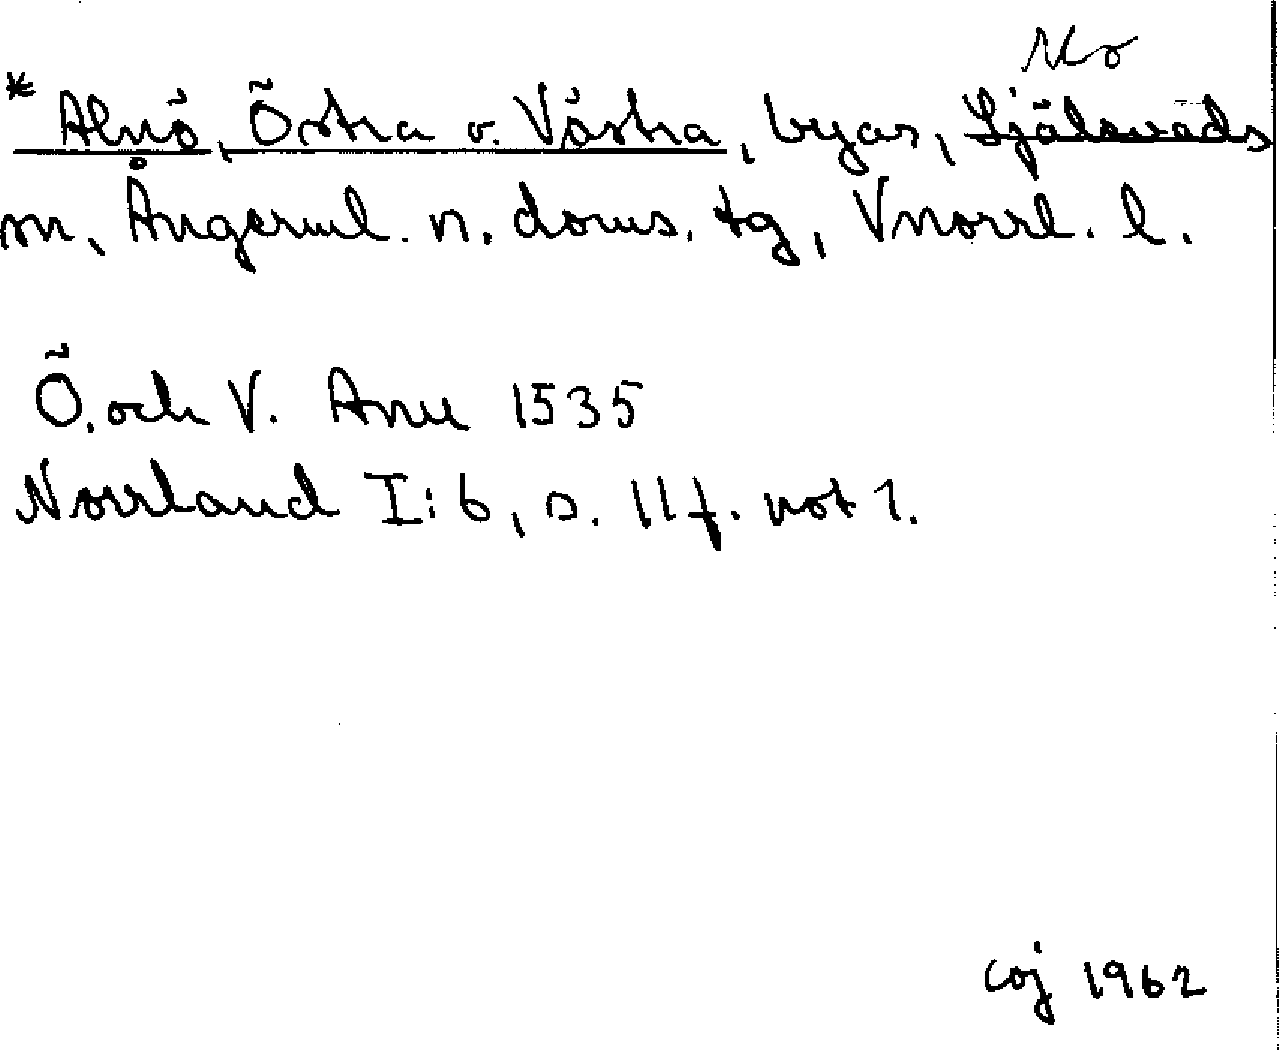 Mo
* Alnö, Östra o. Västra, byar, Själevads
sn, Ångerml. n. doms. tg, Vnorrl. l.
Ö. och V. Anu 1535
Norrland I: 6, s. 11 f. not 1.
COJ 1962